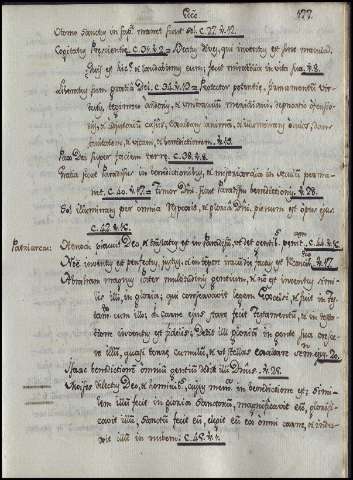 Eccl. 177.
Homo sanctus in sap.ª manet sicut sol. c. 27. ℣. 12.
c. 34. ℣. 2 = Beatus dives, qui inventus est sine macula.
Quis est hic? et laudabimus eum; fecit mirabilia in vita sua. ℣. 8.
c. 34. ℣. 19 = Protector potentiæ, firmamentum vir-
tutis, tegimen ardoris, et umbraculum meridiani, deprecatio offensio-
nis, et adjutorium casus, exaltans animam, et illuminans oculos, dans
sanitatem, et vitam, et benedictionem. ℣. 19.
Pax Dei super faciem terræ. c. 38. ℣. 8.
Gratia sicut Paradisus in benedictionibus, et misericordia in seculum perma-
net. c. 40. ℣. 17 = Timor Dni sicut Paradisus benedictionis. ℣. 28.
Sol illuminans per omnia respexit, et gloria Dni plenum est opus ejus
c. 42. ℣. 16.
Patriarcæ: Henoch placuit Deo, et translatus est in Paradisum, ut det gentib. penit. c. 44. ℣. 16.
Noe inventus est perfectus, justus, et in tempore iracundiæ factus est reconcil. ℣. 17.
Abraham magnus pater multitudinis gentium, et non est inventus simi-
lis illi, in gloria; qui conservavit legem Excelsi, et fuit in tes-
tam. cum illo; in carne ejus stare fecit testamentum, et in tenta-
tione inventus est fidelis; dedit illi gloriam in gente sua cresce-
re illum, quasi terræ cumulum, et ut stellas exaltare semen ejus. 20.
Isaac benedictionem omnium gentium dedit illi Dnus. ℣. 25.
Moises dilectus Deo, et hominibus, cujus mem. in benedictione est; simi-
lem illum fecit in gloria sanctorum, magnificavit eum, glorifi-
cavit illum, sanctum fecit eum, elegit eum ex omni carne, et indu-
xit illum in nubem. c. 45. ℣. 1.